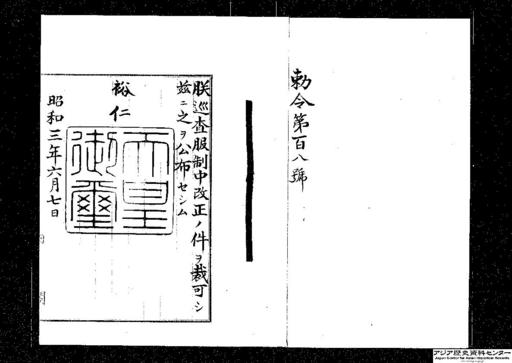 勅令第百八號
朕巡査服制中改正ノ件ヲ裁可シ
茲ニ之ヲ公布セシム
裕仁
天皇御璽
昭和三年六月七日
アジア歴史資料センター
Japan Center for Asian Historical Records